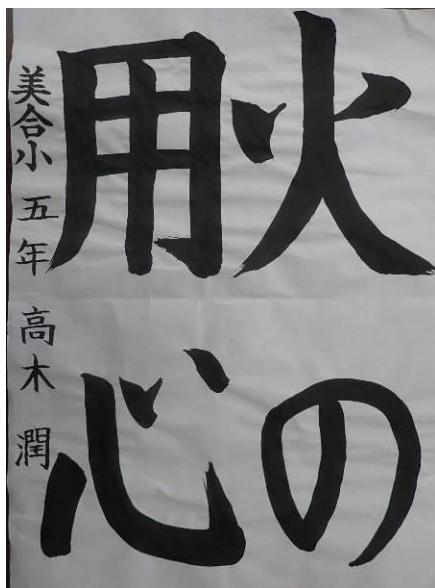 火の
用心
美合小 五年 高木 潤